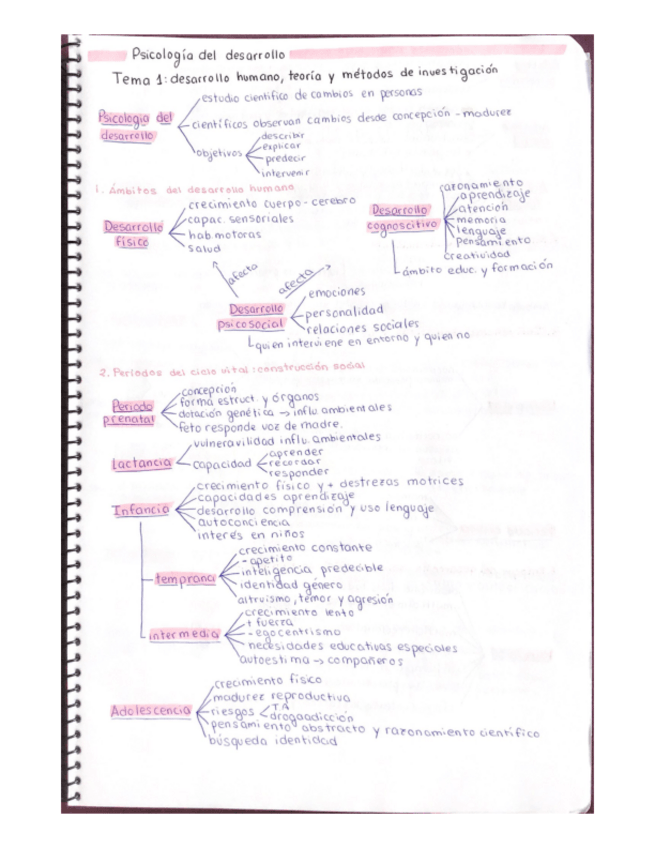 Psicología del desarrollo
Tema 1: desarrollo humano, teoría y métodos de investigación
Psicología del desarrollo
estudio científico de cambios en personas
científicos observan cambios desde concepción - madurez
objetivos
describir
explicar
predecir
intervenir
1. Ámbitos del desarrollo humano
Desarrollo físico
crecimiento cuerpo - cerebro
capac. sensoriales
hab motoras
salud
Desarrollo cognoscitivo
razonamiento
aprendizaje
atención
memoria
lenguaje
Pensamiento
creatividad
ámbito educ. y formación
afecta
afecta
Desarrollo psicosocial
emociones
personalidad
relaciones sociales
quien interviene en entorno y quien no
2. Periodos del ciclo vital: construcción social
Periodo prenatal
concepción
forma estruct. y órganos
dotación genética → influ ambientales
feto responde voz de madre.
Lactancia
vulneravilidad influ. ambientales
capacidad
aprender
recordar
responder
Infancia
crecimiento físico y + destrezas motrices
capacidades aprendizaje
desarrollo comprensión y uso lenguaje
autoconciencia
interés en niños
temprana
crecimiento constante
- apetito
inteligencia predecible
identidad género
altruismo, temor y agresión
intermedia
crecimiento lento
+ fuerza
- egocentrismo
necesidades educativas especiales
autoestima → compañeros
Adolescencia
crecimiento físico
madurez reproductiva
riesgos
TA
drogaadicción
pensamiento abstracto y razonamiento científico
búsqueda identidad